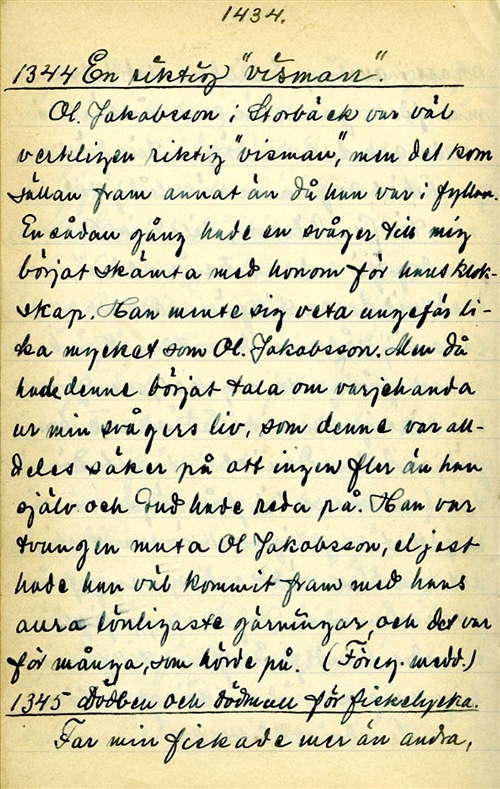 1434.
1344 En riktig "visman".
Ol. Jakobsson i Storbäck var väl
verkligen riktig "visman", men det kom
sällan fram annat än då han var i fyllan.
En sådan gång hade en svåger till mig
börjat skämta med honom för hans klok-
skap. Han mente sig veta ungefär li-
ka mycket som Ol. Jakobsson. Men då
hade denne börjat tala om varjehanda
ur min svågers liv, som denne var all-
deles säker på att ingen fler än han
själv och Gud hade reda på. Han var
tvungen muta Ol Jakobsson, eljest
hade han väl kommit fram med hans
allra lönligaste gärningar, och det var
för många, som hörde på. (Föreg. medd.)
1345 Dödben och dödmull för fiskelycka.
Far min fiskade mer än andra,